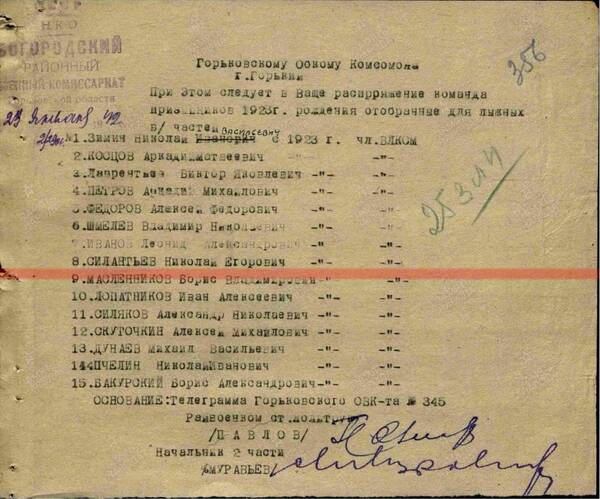 СССР
НКО
БОГОРОДСКИЙ
РАЙОННЫЙ
ВОЕННЫЙ КОМИССАРИАТ
23 Января 42
356
Горьковскому Обкому Комсомола
г.Горький
При этом следует в Ваше распрряжение команда
призывников 1923г. рождения отобранные для лыжных
б/ частей
ВАСИЛЬЕВИЧ
№1.Зимин Николай Иванович с 1923 г. чл.ВЛКСМ
2.КОСЦОВ АркадийМатвеевич -"- -"-
3.Лаврентьев Виктор Яковлевич -"- -"-
4.ПЕТРОВ Аркадий Михайлович -"- -"-
5.ФЕДОРОВ Алексей Федорович -"- -"-
6.ШМЕЛЕВ Владимир Николаевич -"- -"-
7.ИВАНОВ Леонид Александрович -"- -"-
8.СИЛАНТЬЕВ Николай Егорович -"- -"-
9.МАСЛЕННИКОВ Борис Владимирович -"- -"-
10.ЛОПАТНИКОВ Иван Алексеевич -"- -"-
11.СИЛЯКОВ Александр Николаевич -"- -"-
12.СКУТОЧКИН Алексей Михайлович -"- -"-
13.ДУНАЕВ Михаил Васильевич -"- -"-
144ПЧЕЛИН НиколайИванович -"- -"-
15.БАКУРСКИЙ Борис Александрович -"- -"-
253
ОСНОВАНИЕ:Телеграмма Горьковского ОВК-та № 345
Райвоенком ст.политр
/ПАВЛОВ/
Начальник 2 части
/МУРАВЬЕВ/